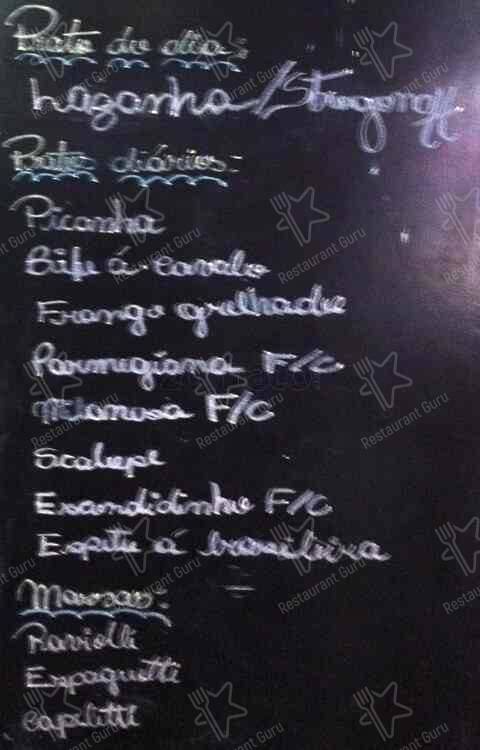 Prato do dia:
Lazanha/Strogonoff
Pratos diários:
Picanha
Bife á cavalo
Frango grelhado
Parmegiana F/C
Milanesa F/C
Scalope
Escondidinho F/C
Espeto á brasileira
Massas:
Raviolli
Espaguetti
Capeletti
Restaurant Guru